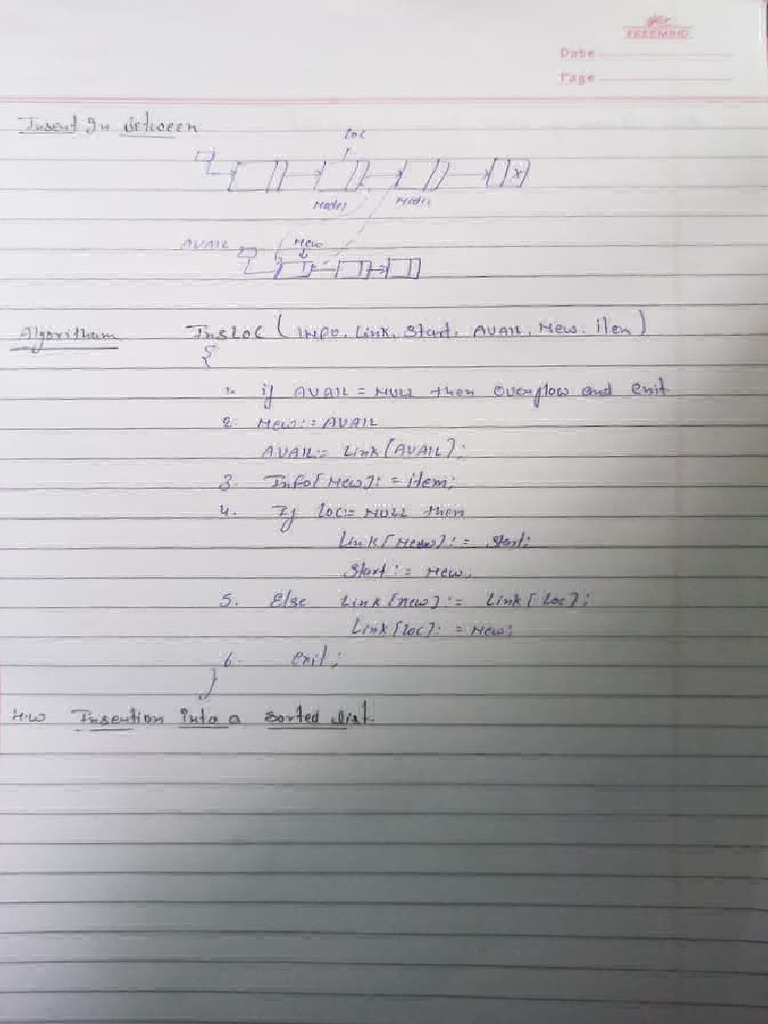 FREEMIND
Date
Page
Insert In Between
Loc
AVAIL New
Algoritham InsLoc (INFO, Link, Start, AVAIL, New, item)
{
1. if AVAIL = NULL then overflow and exit
2. New := AVAIL
AVAIL := Link[AVAIL];
3. Info[New] := item;
4. If Loc = NULL then
Link[New] := Start;
Start := New;
5. Else Link[new] := Link[Loc];
Link[Loc] := New;
6. exit;
}
H.W Insertion into a sorted list.